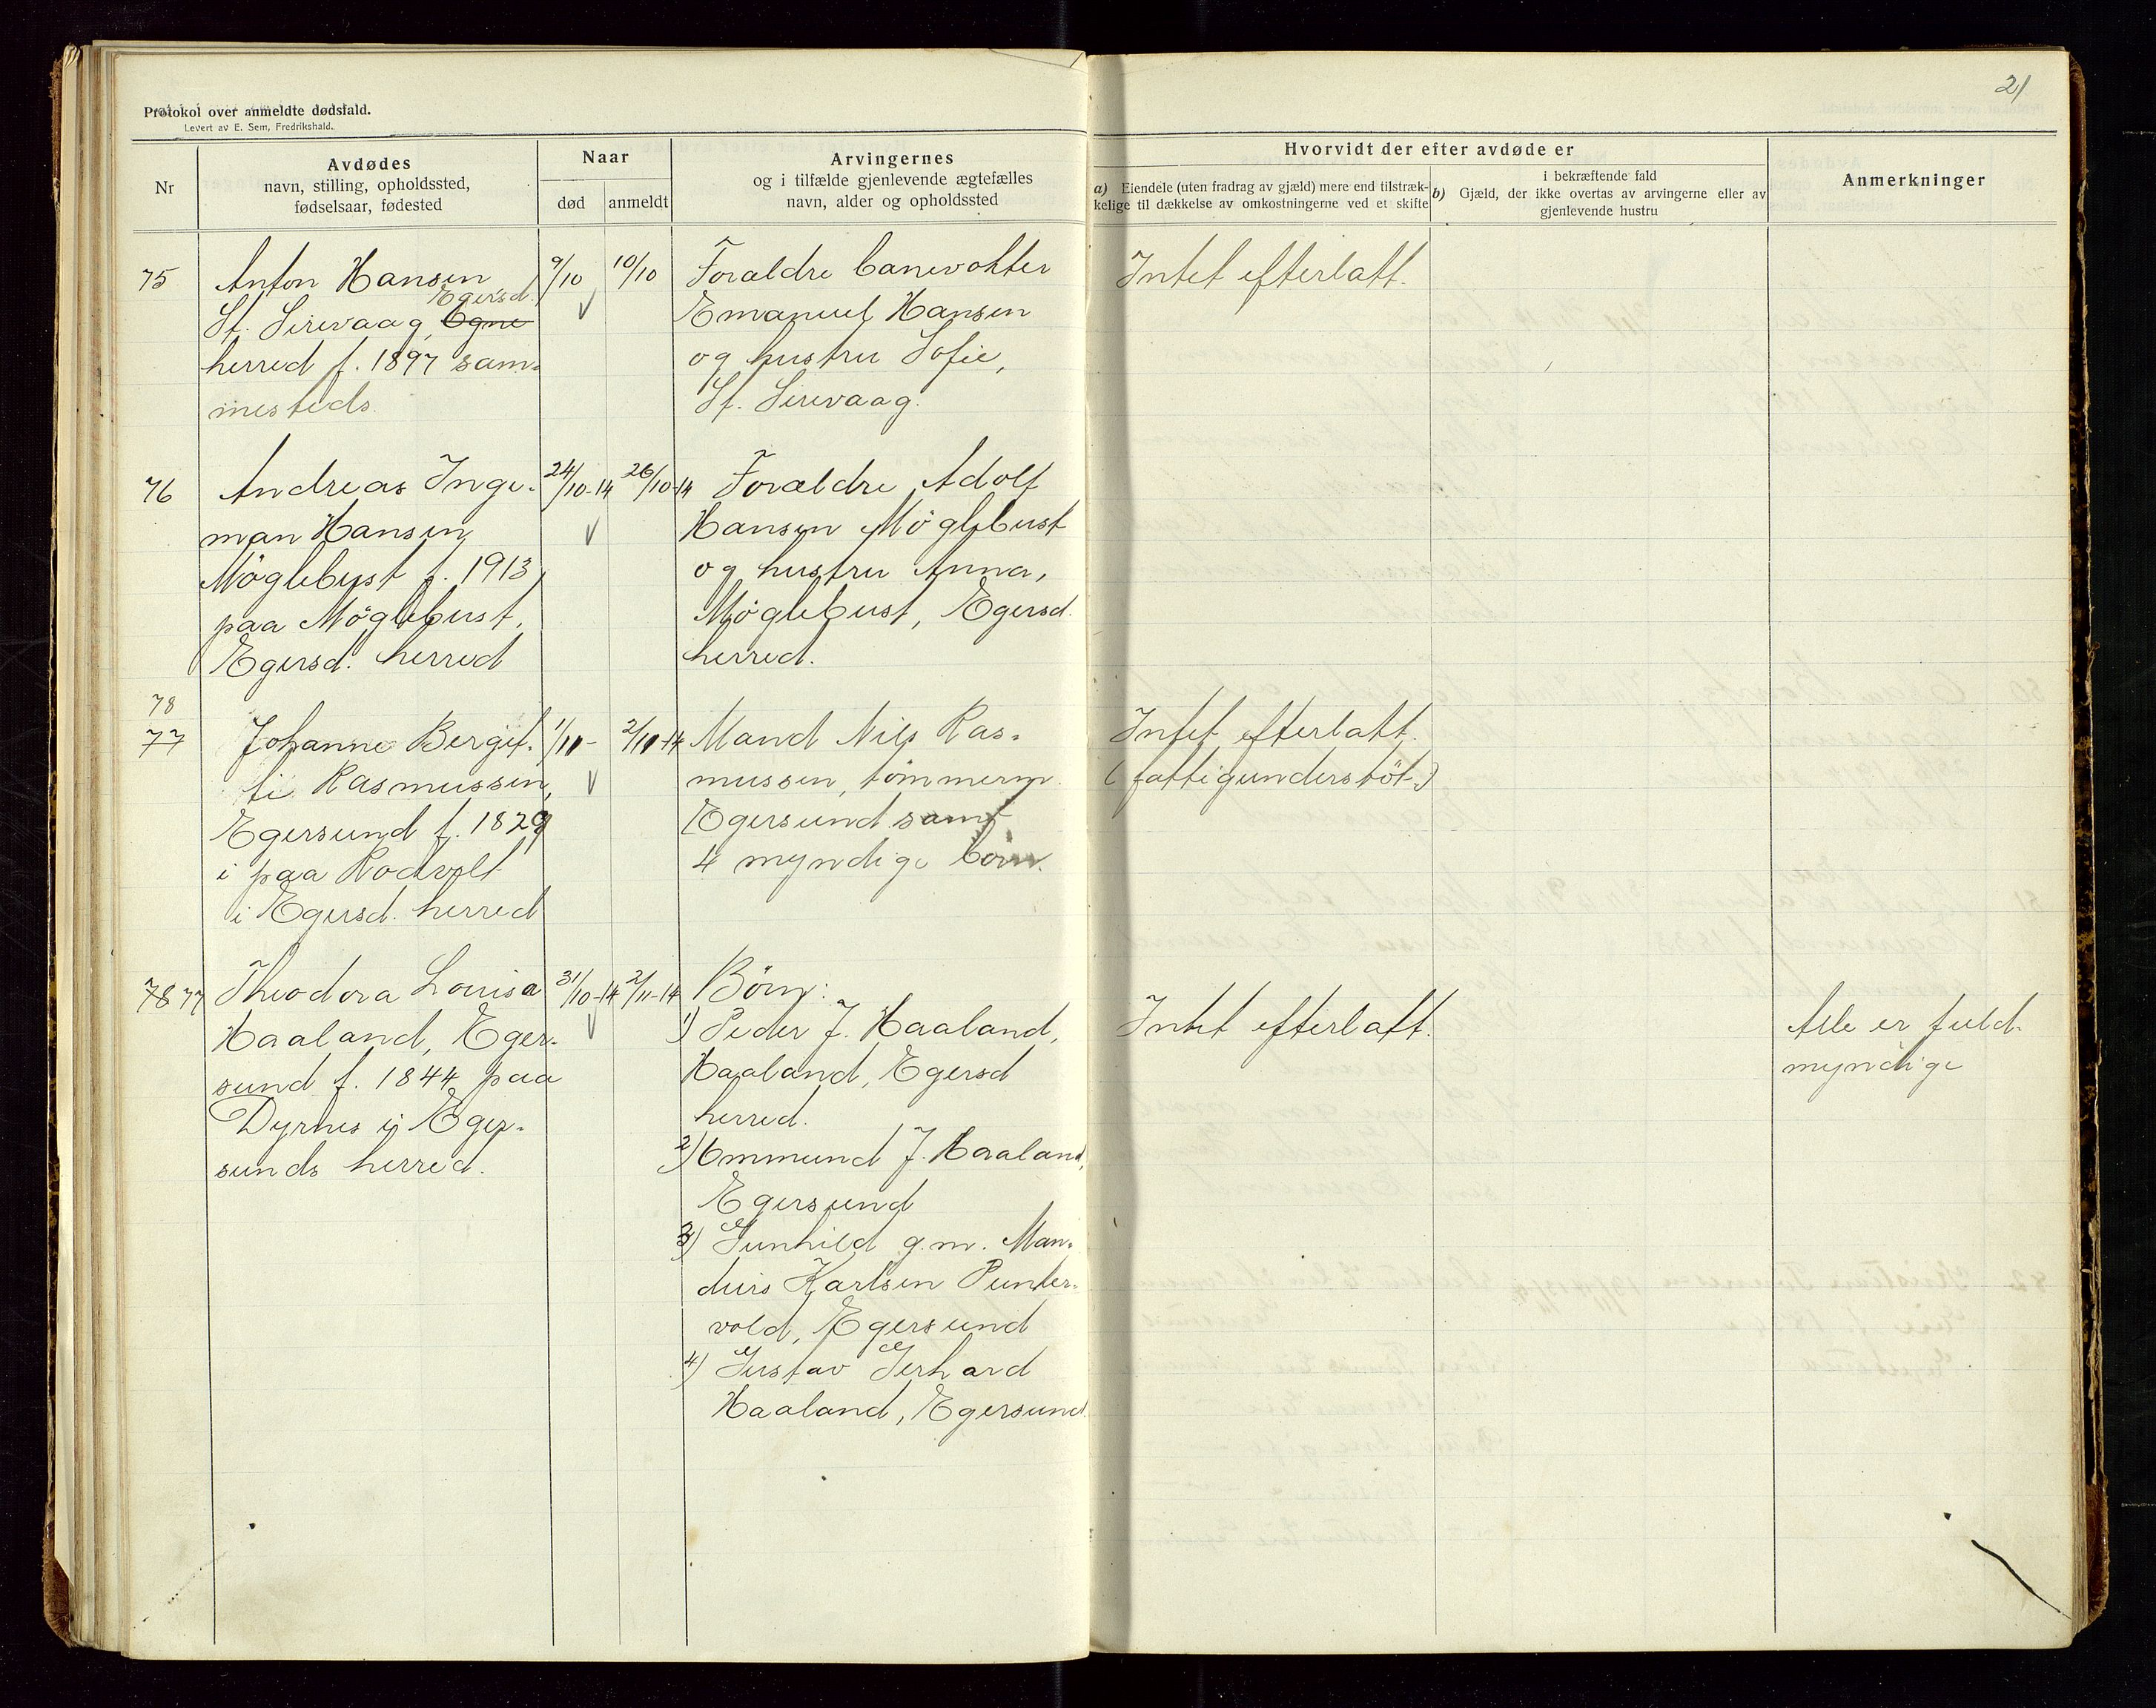 21
Protokol over anmeldte dødsfald.
Levert av E. Sem, Fredrikshald.
Nr
Avdødes
navn, stilling, opholdssted,
fødselsaar, fødested
Naar
død
anmeldt
Arvingernes
og i tilfælde gjenlevende ægtefælles
navn, alder og opholdssted
Hvorvidt der efter avdøde er
a) Eiendele (uten fradrag av gjæld) mere end tilstræk-
kelige til dækkelse av omkostningerne ved et skifte
i bekræftende fald
b) Gjæld, der ikke overtas av arvingerne eller av
gjenlevende hustru
Anmerkninger
75
Anton Hansen
Egersd.
St. Sirevaag, Ogne
herred f. 1897 sam-
mesteds.
9/10
10/10
Forældre banevokter
Emanuel Hansen
og hustru Sofie,
St. Sirevaag.
Intet efterlatt.
76
Andreas Inge-
man Hansen
Möglebust f. 1913
paa Möglebust,
Egersd. herred
24/10-14
26/10-14
Forældre Adolf
Hansen Möglebust
og hustru Anna,
Möglebust, Egersd.
herred.
78
77
Johanne Bergit-
te Rasmussen,
Egersund f. 1829
i paa Rodvelt
i Egersd. herred
1/11-
2/11-14
Mand Nils Ras-
mussen, tömmerm.
Egersund samt
4 myndige börn.
Intet efterlatt.
(fattigunderstöt.)
78 77
Theodora Lovisa
Haaland, Eger-
sund f. 1844 paa
Dyrnes i Eger-
sunds herred.
31/10-14
2/11-14
Börn:
1) Peder J. Haaland,
Haaland, Egersd
herred.
2) Ommund J. Haaland,
Egersund
3) Gunhild g.m. Man-
dius Karlsen Punter-
vold, Egersund
4) Gustav Gerhard
Haaland, Egersund.
Intet efterlatt.
Alle er fuld-
myndige